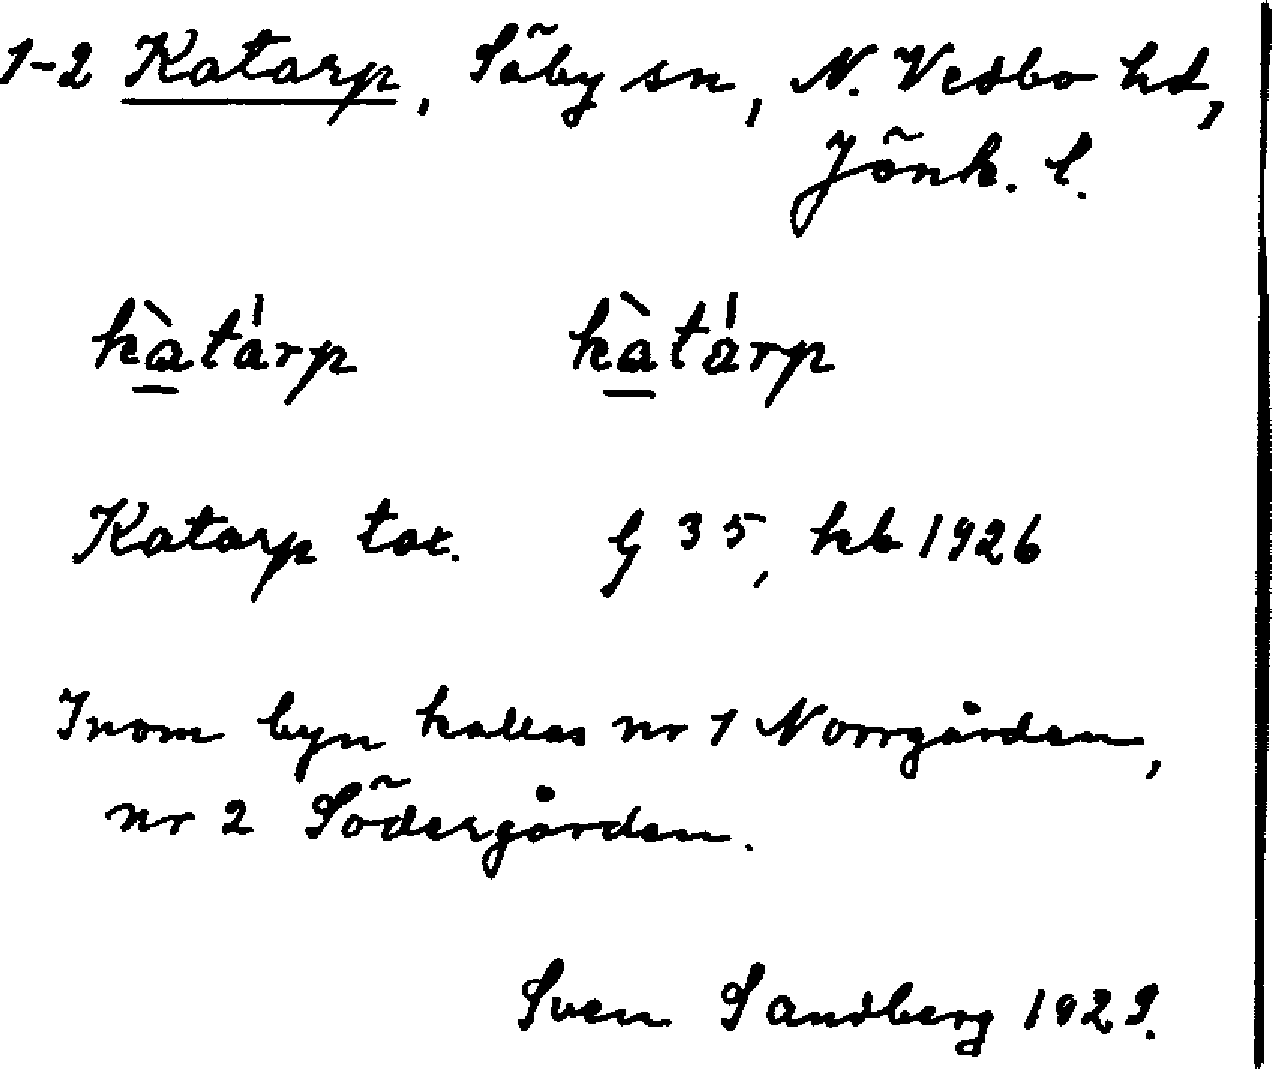 1-2 Katarp, Säby sn, N. Vedbo hd,
Jönk. l.
kàtárp kàtárp
Katarp tot. G 35, kb 1926
Inom byn kallas nr 1 Norrgården,
nr 2 Södergården.
Sven Sandberg 1929.